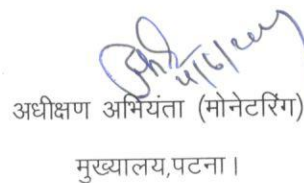 अधीक्षण अभियंता (मोनेटरिंग)
मुख्यालय,पटना।